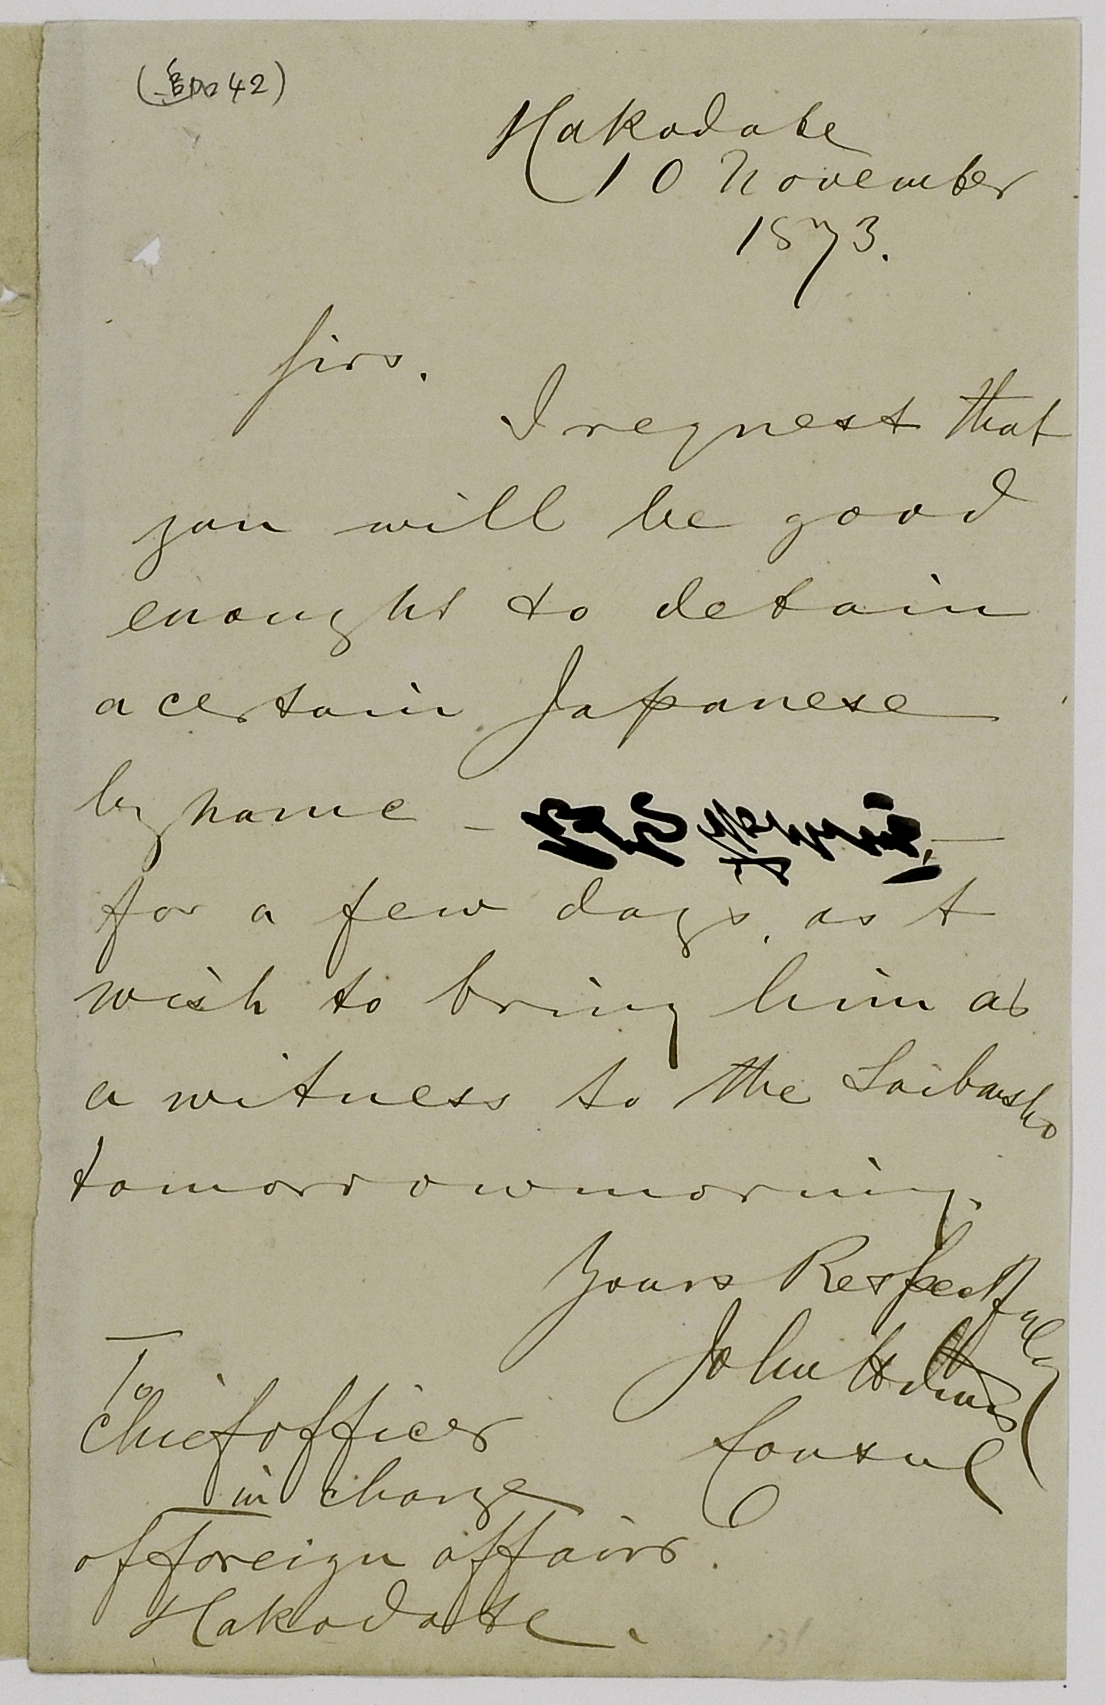 42)
Hakodate
10 November
1873.
Sirs.
I request that
you will be good
enought to detain
a certain Japanese
by name —
for a few days, as I
wish to bring him as
a witness to the Saibansho
tomorrow morning.
Yours Respectfully
John H
Consul
To
Chief officer
in charge
of foreign affairs.
Hakodate.